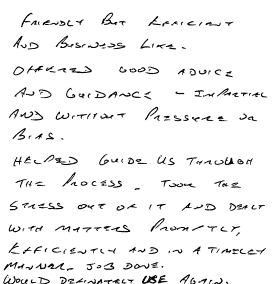 FRIENDLY BUT EFFICIENT
AND BUSINESS LIKE.
OFFERED GOOD ADVICE
AND GUIDANCE - IMPARTIAL
AND WITHOUT PRESSURE OR
BIAS.
HELPED GUIDE US THROUGH
THE PROCESS. TOOK THE
STRESS OUT OF IT AND DEALT
WITH MATTERS PROMPTLY,
EFFICIENTLY AND IN A TIMELY
MANNER. JOB DONE.
WOULD DEFINATELY USE AGAIN.